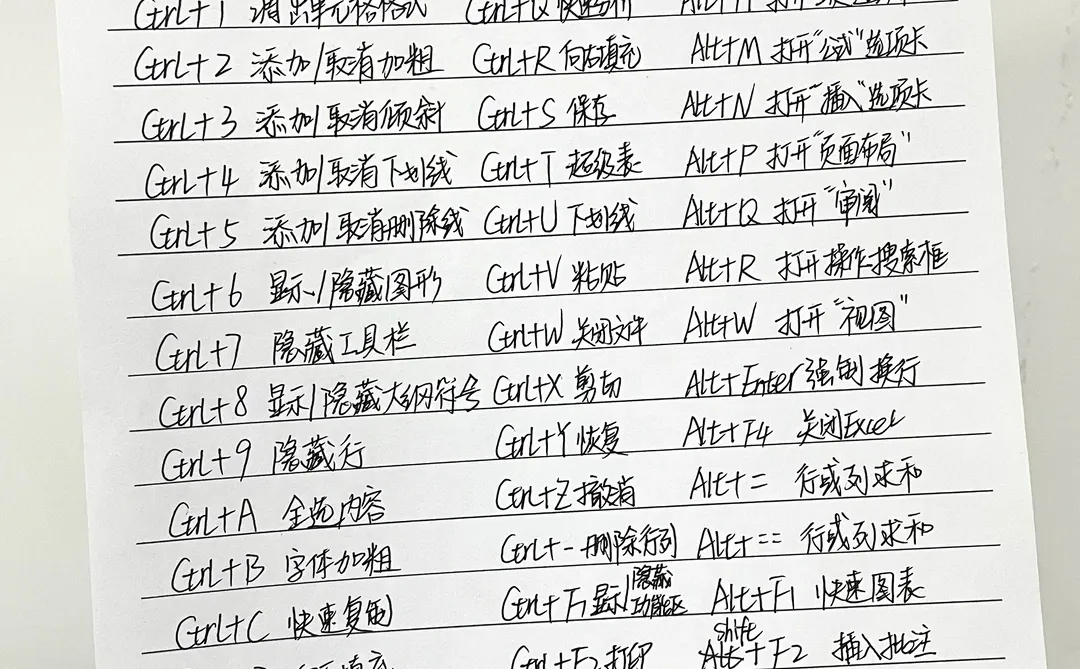 Ctrl+1 调出单元格格式 Ctrl+Q 快速分析
Ctrl+2 添加/取消加粗 Ctrl+R 向右填充 Alt+M 打开"公式"选项卡
Ctrl+3 添加/取消倾斜 Ctrl+S 保存 Alt+N 打开"插入"选项卡
Ctrl+4 添加/取消下划线 Ctrl+T 超级表 Alt+P 打开"页面布局"
Ctrl+5 添加/取消删除线 Ctrl+U 下划线 Alt+Q 打开"审阅"
Ctrl+6 显示/隐藏图形 Ctrl+V 粘贴 Alt+R 打开操作搜索框
Ctrl+7 隐藏工具栏 Ctrl+W 关闭文件 Alt+W 打开"视图"
Ctrl+8 显示/隐藏大纲符号 Ctrl+X 剪切 Alt+Enter 强制换行
Ctrl+9 隐藏行 Ctrl+Y 恢复 Alt+F4 关闭Excel
Ctrl+A 全选内容 Ctrl+Z 撤消 Alt+= 行或列求和
Ctrl+B 字体加粗 Ctrl+- 删除行列 Alt+== 行或列求和
Ctrl+C 快速复制 Ctrl+F1 显示/隐藏功能区 Alt+F1 快速图表
Ctrl+F2 打印 shift Alt+F2 插入批注